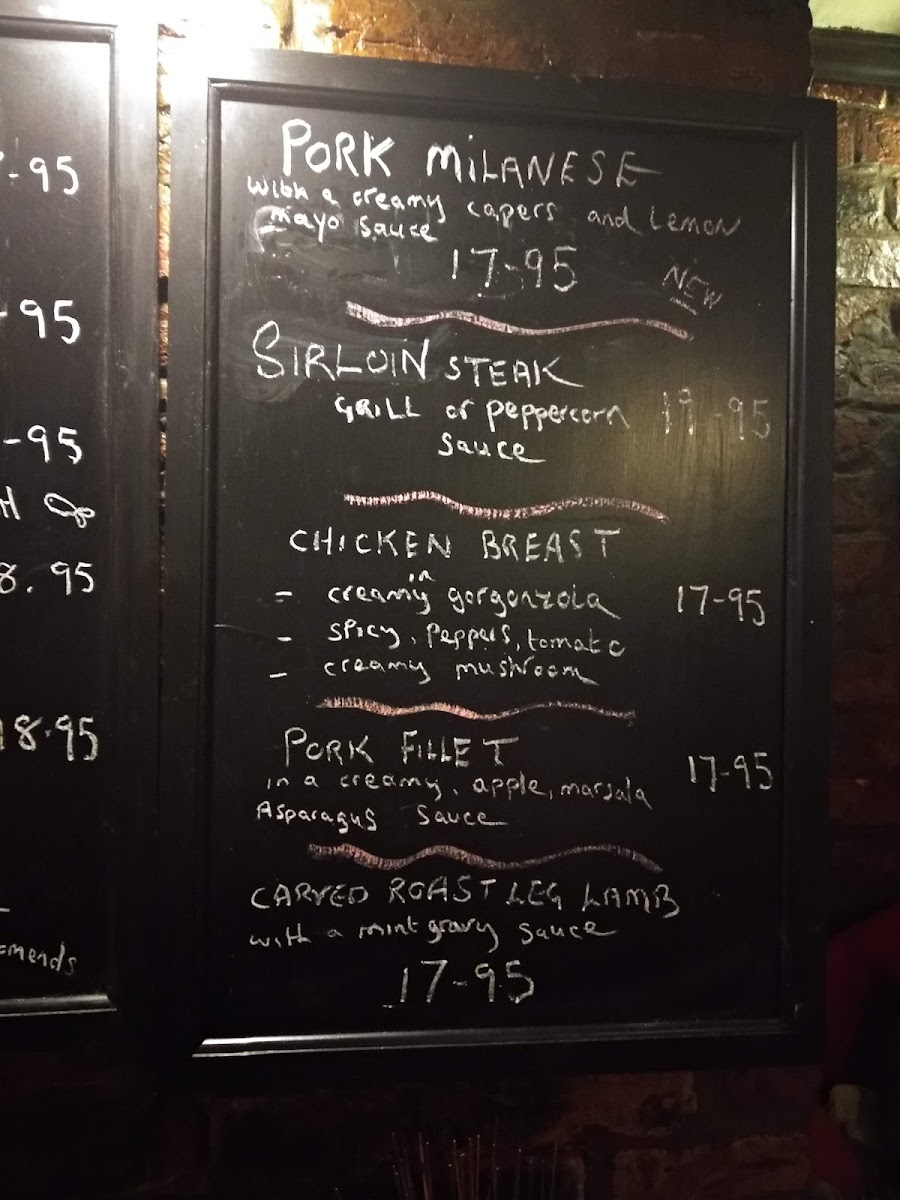 PORK MILANESE
with a creamy capers and Lemon
mayo sauce
17-95
NEW
SIRLOIN STEAK
GRILL or peppercorn 19-95
sauce
CHICKEN BREAST
in
- creamy gorgonzola 17-95
- spicy, peppers, tomato
- creamy mushroom
PORK FILLET
17-95
in a creamy, apple, marsala
Asparagus sauce
CARVED ROAST LEG LAMB
with a mint gravy sauce
17-95
-95
-95
-95
H
8.95
18-95